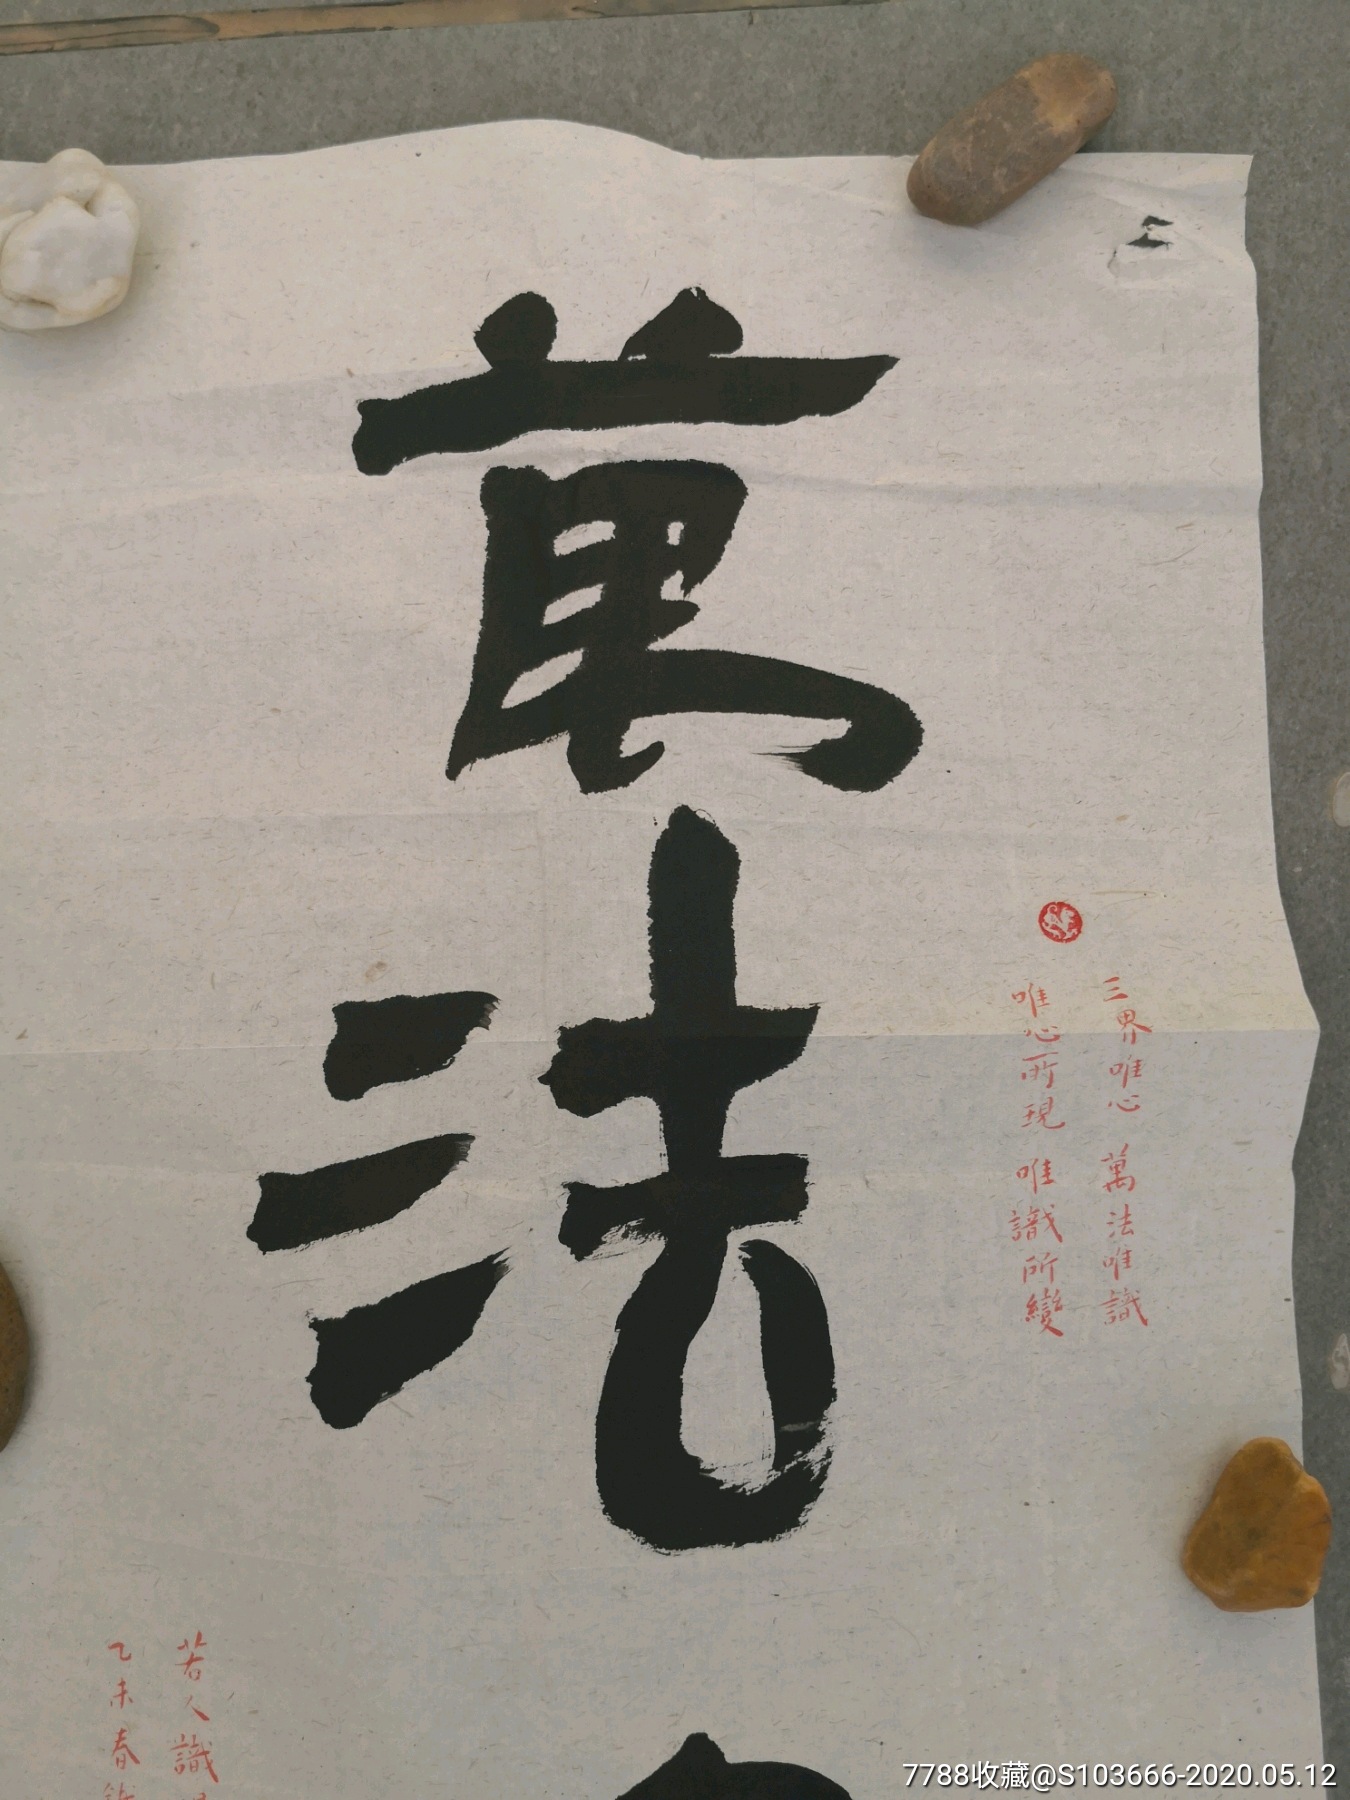 萬法
三界唯心 萬法唯識
唯心所現 唯識所變
若人識
乙未春
7788收藏@S103666-2020.05.12